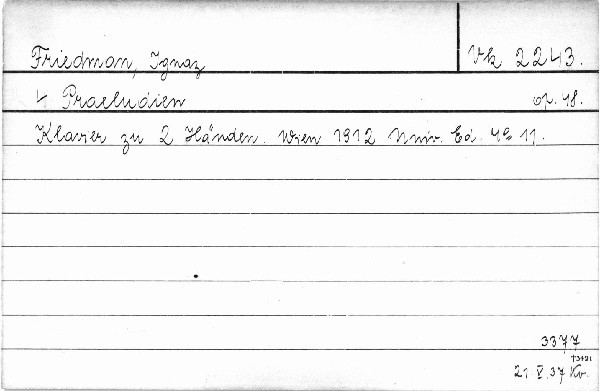 Friedman, Ignaz
Vk 2243.
4 Praeludien
op. 48.
Klavier zu 2 Händen. Wien 1912 Univ. Ed. 4° 11.
3377
21 V 37 Kv.